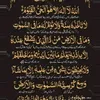 اللَّهُ لَا إِلَٰهَ إِلَّا هُوَ الْحَيُّ الْقَيُّومُ
لَا تَأْخُذُهُ سِنَةٌ وَلَا نَوْمٌ لَهُ مَا فِي السَّمَٰوَٰتِ
وَمَا فِي الْأَرْضِ مَنْ ذَا الَّذِي يَشْفَعُ عِنْدَهُ
إِلَّا بِإِذْنِهِ يَعْلَمُ مَا بَيْنَ أَيْدِيهِمْ وَمَا خَلْفَهُمْ
وَلَا يُحِيطُونَ بِشَيْءٍ مِنْ عِلْمِهِ إِلَّا بِمَا شَاءَ
وَسِعَ كُرْسِيُّهُ السَّمَٰوَٰتِ وَالْأَرْضَ